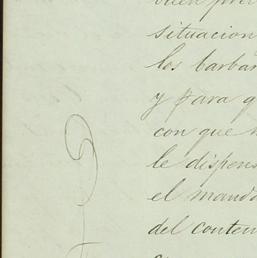 situacion
los barbar
y para q
con que
le dispens
el mando
del conten